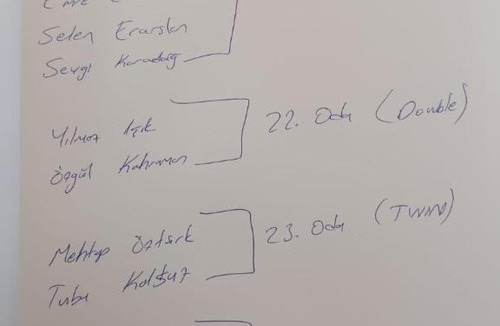 Selen Erarslan
Sevgi Karadağ
Yılmaz Işık
22. Oda (Double)
Özgül Kahraman
Mehtap Öztürk
23. Oda (TWIN)
Tuba